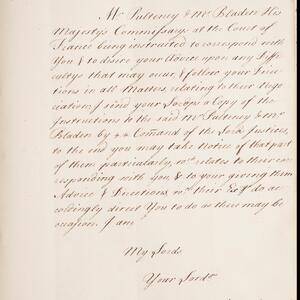 Mr Pulteney & Mr Bladen His
Majestys Commissarys at the Court of
France being instructed to correspond with
You & to desire your Advice upon any Diffi-
cultys that may occur & follow your Direc-
tions in all Matters, relating to their Nego-
ciation, I send your Lordps a Copy of the
Instructions to the said Mr Pulteney & Mr
Bladen by ye Comand of the Lords Justices,
to the end you may take Notice of that part
of them particularly, wch relates to their cor-
responding with you & to your giving them
Advice & Directions, wch their Exys do ac-
cordingly direct You to do as there may be
occasion. I am
My Lords
Your Lordps